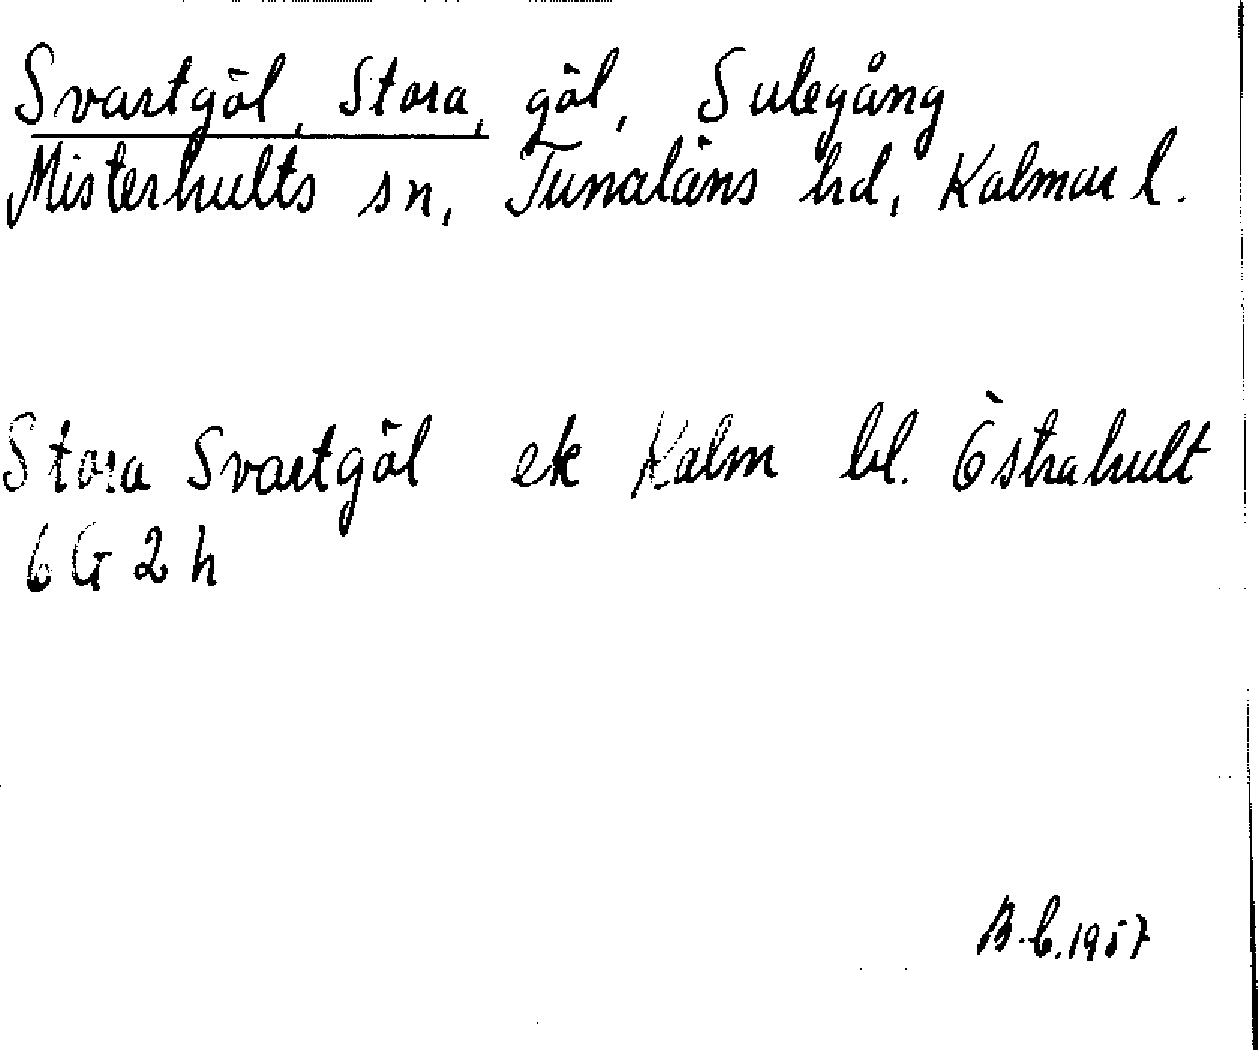 Svartgöl, Stora, göl, Sulegång
Misterhults sn, Tunaläns hd, Kalmar l.
Stora Svartgöl ek Kalm bl. Östrahult
6 G 2 h
B.C. 1957